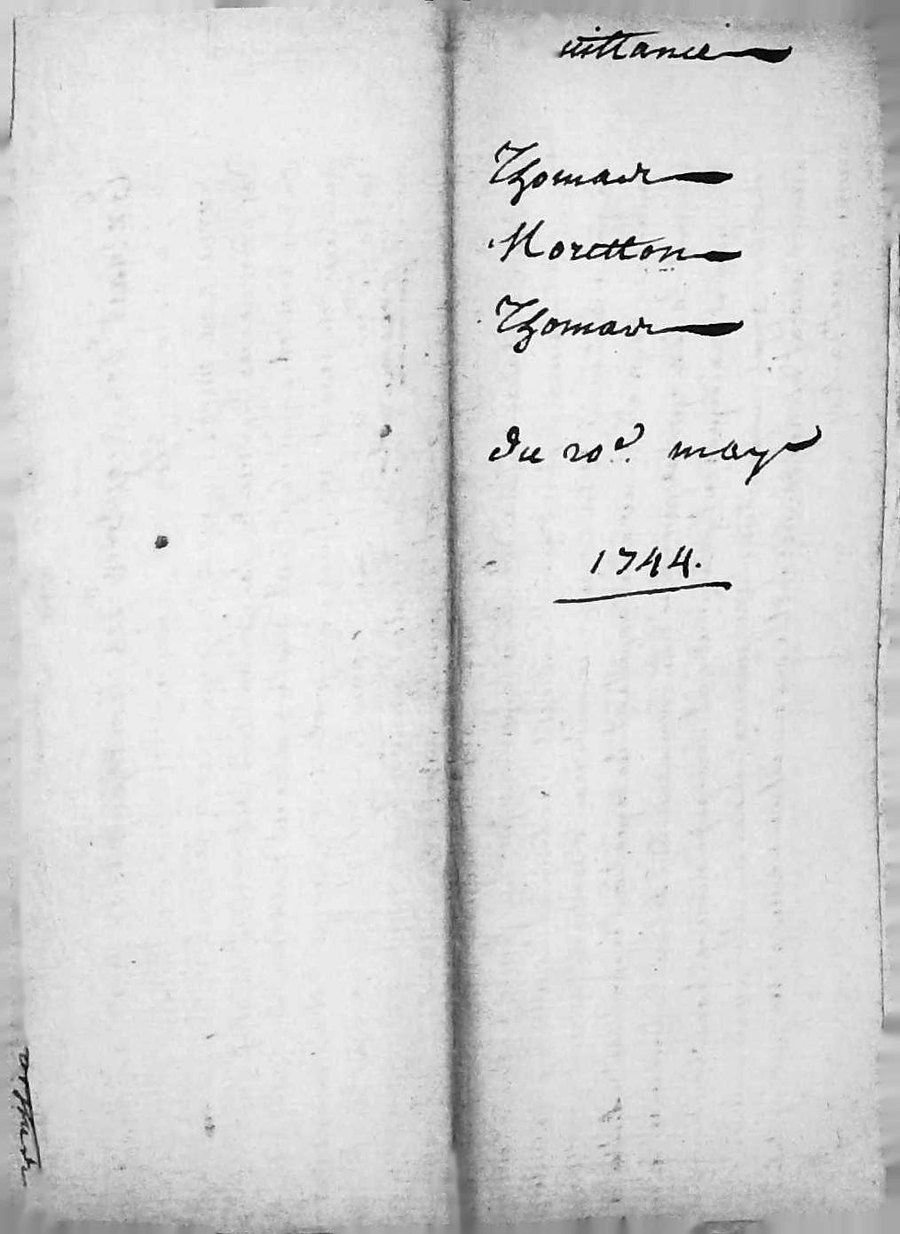 uittance
Thomas
Moretton
Thomas
du 20e. may
1744.